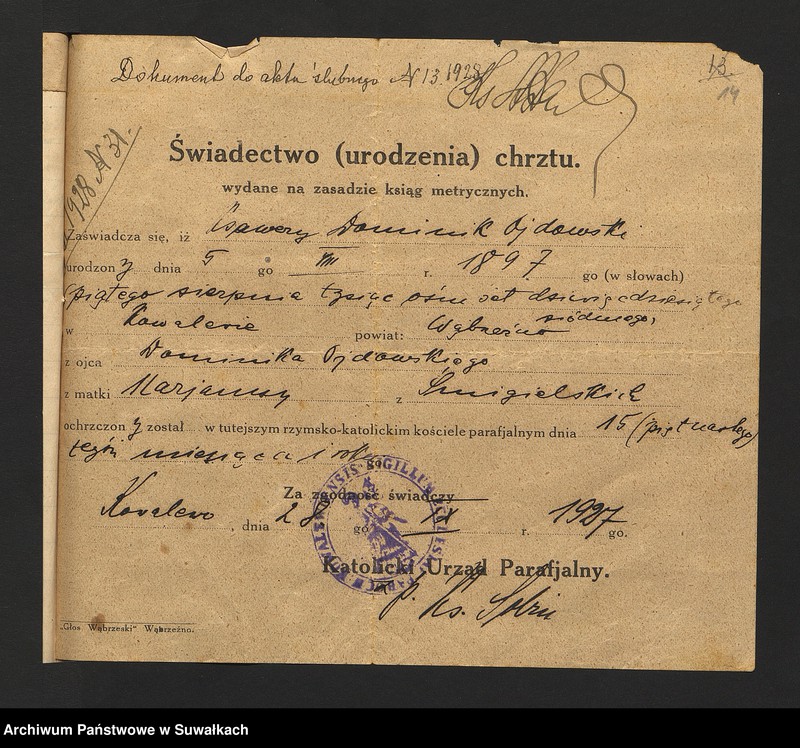 Dokument do aktu ślubnego N 13. 1928
13
14
1928 N 31.
Świadectwo (urodzenia) chrztu.
wydane na zasadzie ksiąg metrycznych.
Zaświadcza się, iż Ksawery Dominik Ojdowski
urodzony dnia 5 go VIII r. 1897 go (w słowach)
(piątego sierpnia tysiąc ośmset dziewięćdziesiątego
siódmego,
w Kowalewie powiat: Wąbrzeźno
z ojca Dominika Ojdowskiego
z matki Marjanny z Śmigielskich
ochrzczony został w tutejszym rzymsko-katolickim kościele parafjalnym dnia 15 (piętnastego)
tegoż miesiąca i roku go
Za zgodność świadczy
Kowalewo, dnia 28 go IX r. 1927 go.
Katolicki Urząd Parafjalny.
p. Ks.
SIGILLUM ECCLESIAE
„Głos Wąbrzeski" Wąbrzeźno.
Archiwum Państwowe w Suwałkach